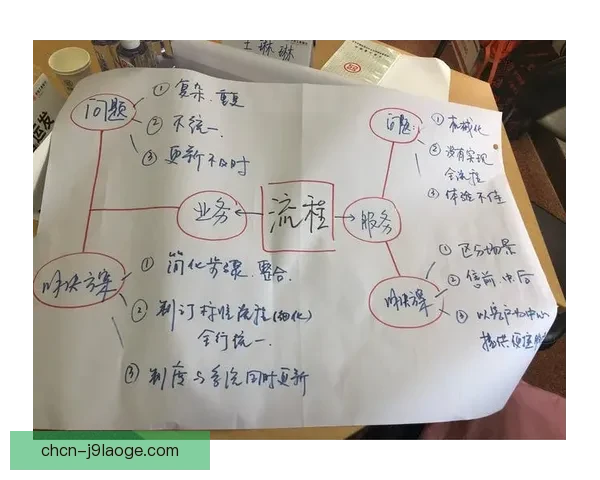 王琳琳
问题
① 复杂.重复
② 不统一
③ 更新不及时
业务
流程
服务
问题:
① 机械化
② 没有实现
全流程
③ 体验不佳
解决方案
① 简化步骤.整合.
② 制订标准流程(细化)
全行统一.
③ 制度与系统同时更新
解决方案
① 区分场景
② 售前.中.后
③ 以客户为中心
提供便捷服
chcn-j9laoge.com